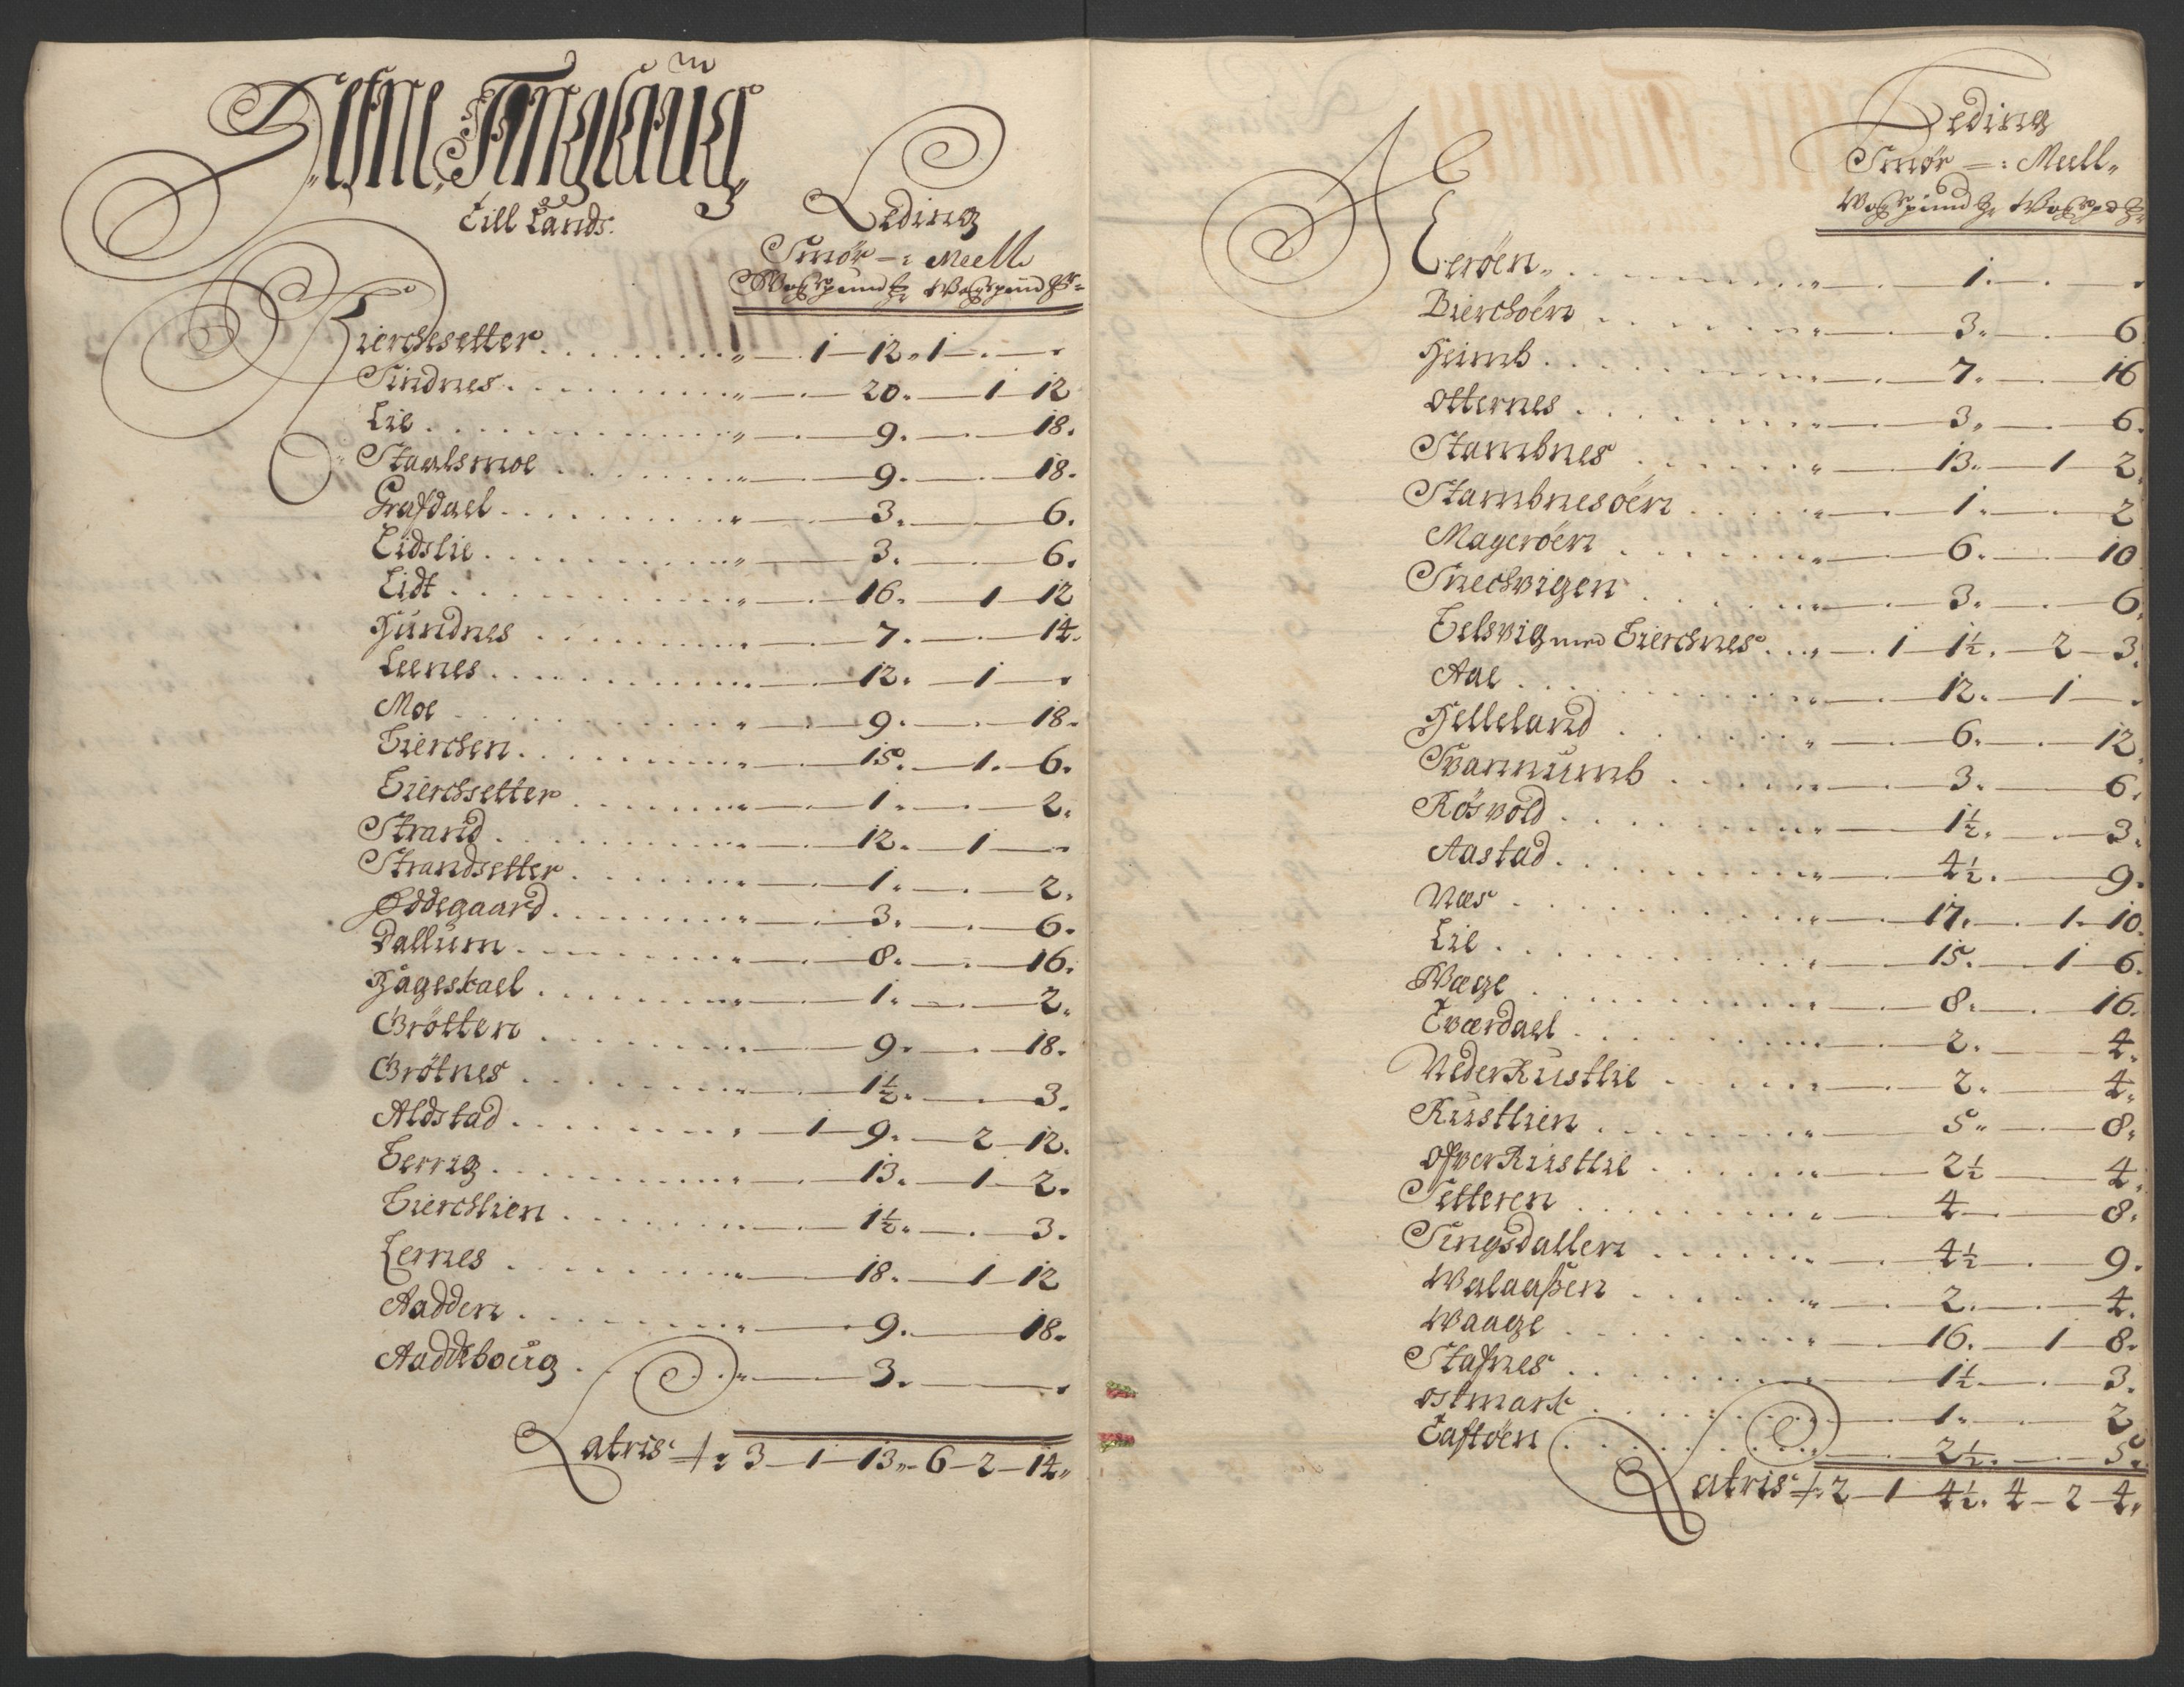 Hefne Tinglaug
till Lands.
Leding
Smør =: Meell
Wog pund ℔ Wog pund ℔
Kierchesetter . . . 1 — 12 " 1 —
Sundnes . . . 20. — 1 12
Lie . . . 9. — 18.
Staalsmoe . . . 9. — 18.
Grafdael . . . 3. — 6.
Eidslie . . . 3. — 6.
Eidt . . . 16. — 1 12
Hundnes . . . 7. — 14.
Leenes . . . 12. — 1 —
Moe . . . 9. — 18.
Bierchen . . . 15. — 1. 6.
Bierchsetter . . . 1. — 2.
Strand . . . 12. — 1 —
Strandsetter . . . 1. — 2.
Øddegaard . . . 3. — 6.
Dallum . . . 8. — 16.
Hageskael . . . 1. — 2.
Grøtten . . . 9. — 18.
Grøtnes . . . 1½. — 3.
Aldstad . . . 1 — 9. — 2 — 12.
Berrig . . . 13. — 1 2.
Bierchlien . . . 1½. — 3.
Lernes . . . 18. — 1 12
Aadden . . . 9. — 18.
Aaddeboug . . . 3. —
Latris 3 — 1 — 13 " 6 — 2 — 14 "
Leding
Smør =: Meell "
Wog pund ℔ Wog pd ℔
Eerøen " . . . 1. —
Bierchøen . . . 3. — 6
Heimb . . . 7. — 16
Otternes . . . 3. — 6.
Stambnes . . . 13. — 1 2.
Stambnesøen . . . 1. — 2
Magerøen . . . 6. — 10
Snechvigen . . . 3. — 6.
Belsvig med Bierchnes . . . 1 1½. — 2 — 3.
Aae . . . 12. — 1 —
Helleland . . . 6. — 12.
Svannumb . . . 3. — 6.
Røsvold . . . 1½. — 3.
Aastad . . . 4½. — 9.
Næs . . . 17. — 1. 10.
Lie . . . 15. — 1 6.
Wæge . . . 8. — 16.
Tværdael . . . 2. — 4.
Neder Rustlie . . . 2. — 4.
Rustlien . . . 5 " — 8.
Ofver Rustlie . . . 2½ — 4.
Setteren . . . 4 — 8.
Singsdallen . . . 4½ — 9.
Walaaßen . . . 2. — 4.
Waage . . . 16. — 1 8.
Stafnes . . . 1½. — 3.
Ostmark . . . 1. — 2
Taftøen . . . 2½. — 5.
Latris 2 — 1 4½. 4 — 2 — 4 "